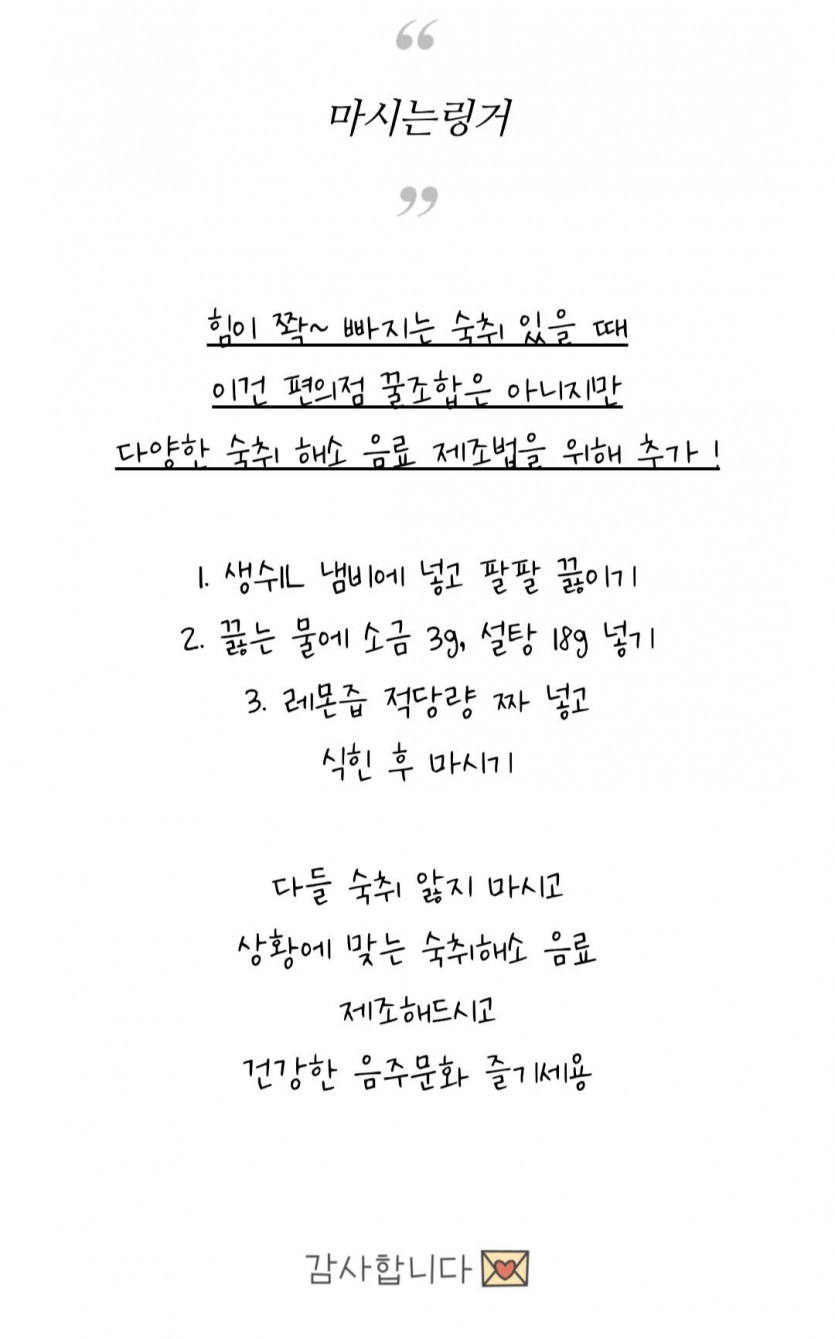 “
마시는링거
”
힘이 쫙~ 빠지는 숙취 있을 때
이건 편의점 꿀조합은 아니지만
다양한 숙취 해소 음료 제조법을 위해 추가!
1. 생수1L 냄비에 넣고 팔팔 끓이기
2. 끓는 물에 소금 3g, 설탕 18g 넣기
3. 레몬즙 적당량 짜 넣고
식힌 후 마시기
다들 숙취 앓지 마시고
상황에 맞는 숙취해소 음료
제조해드시고
건강한 음주문화 즐기세용
감사합니다